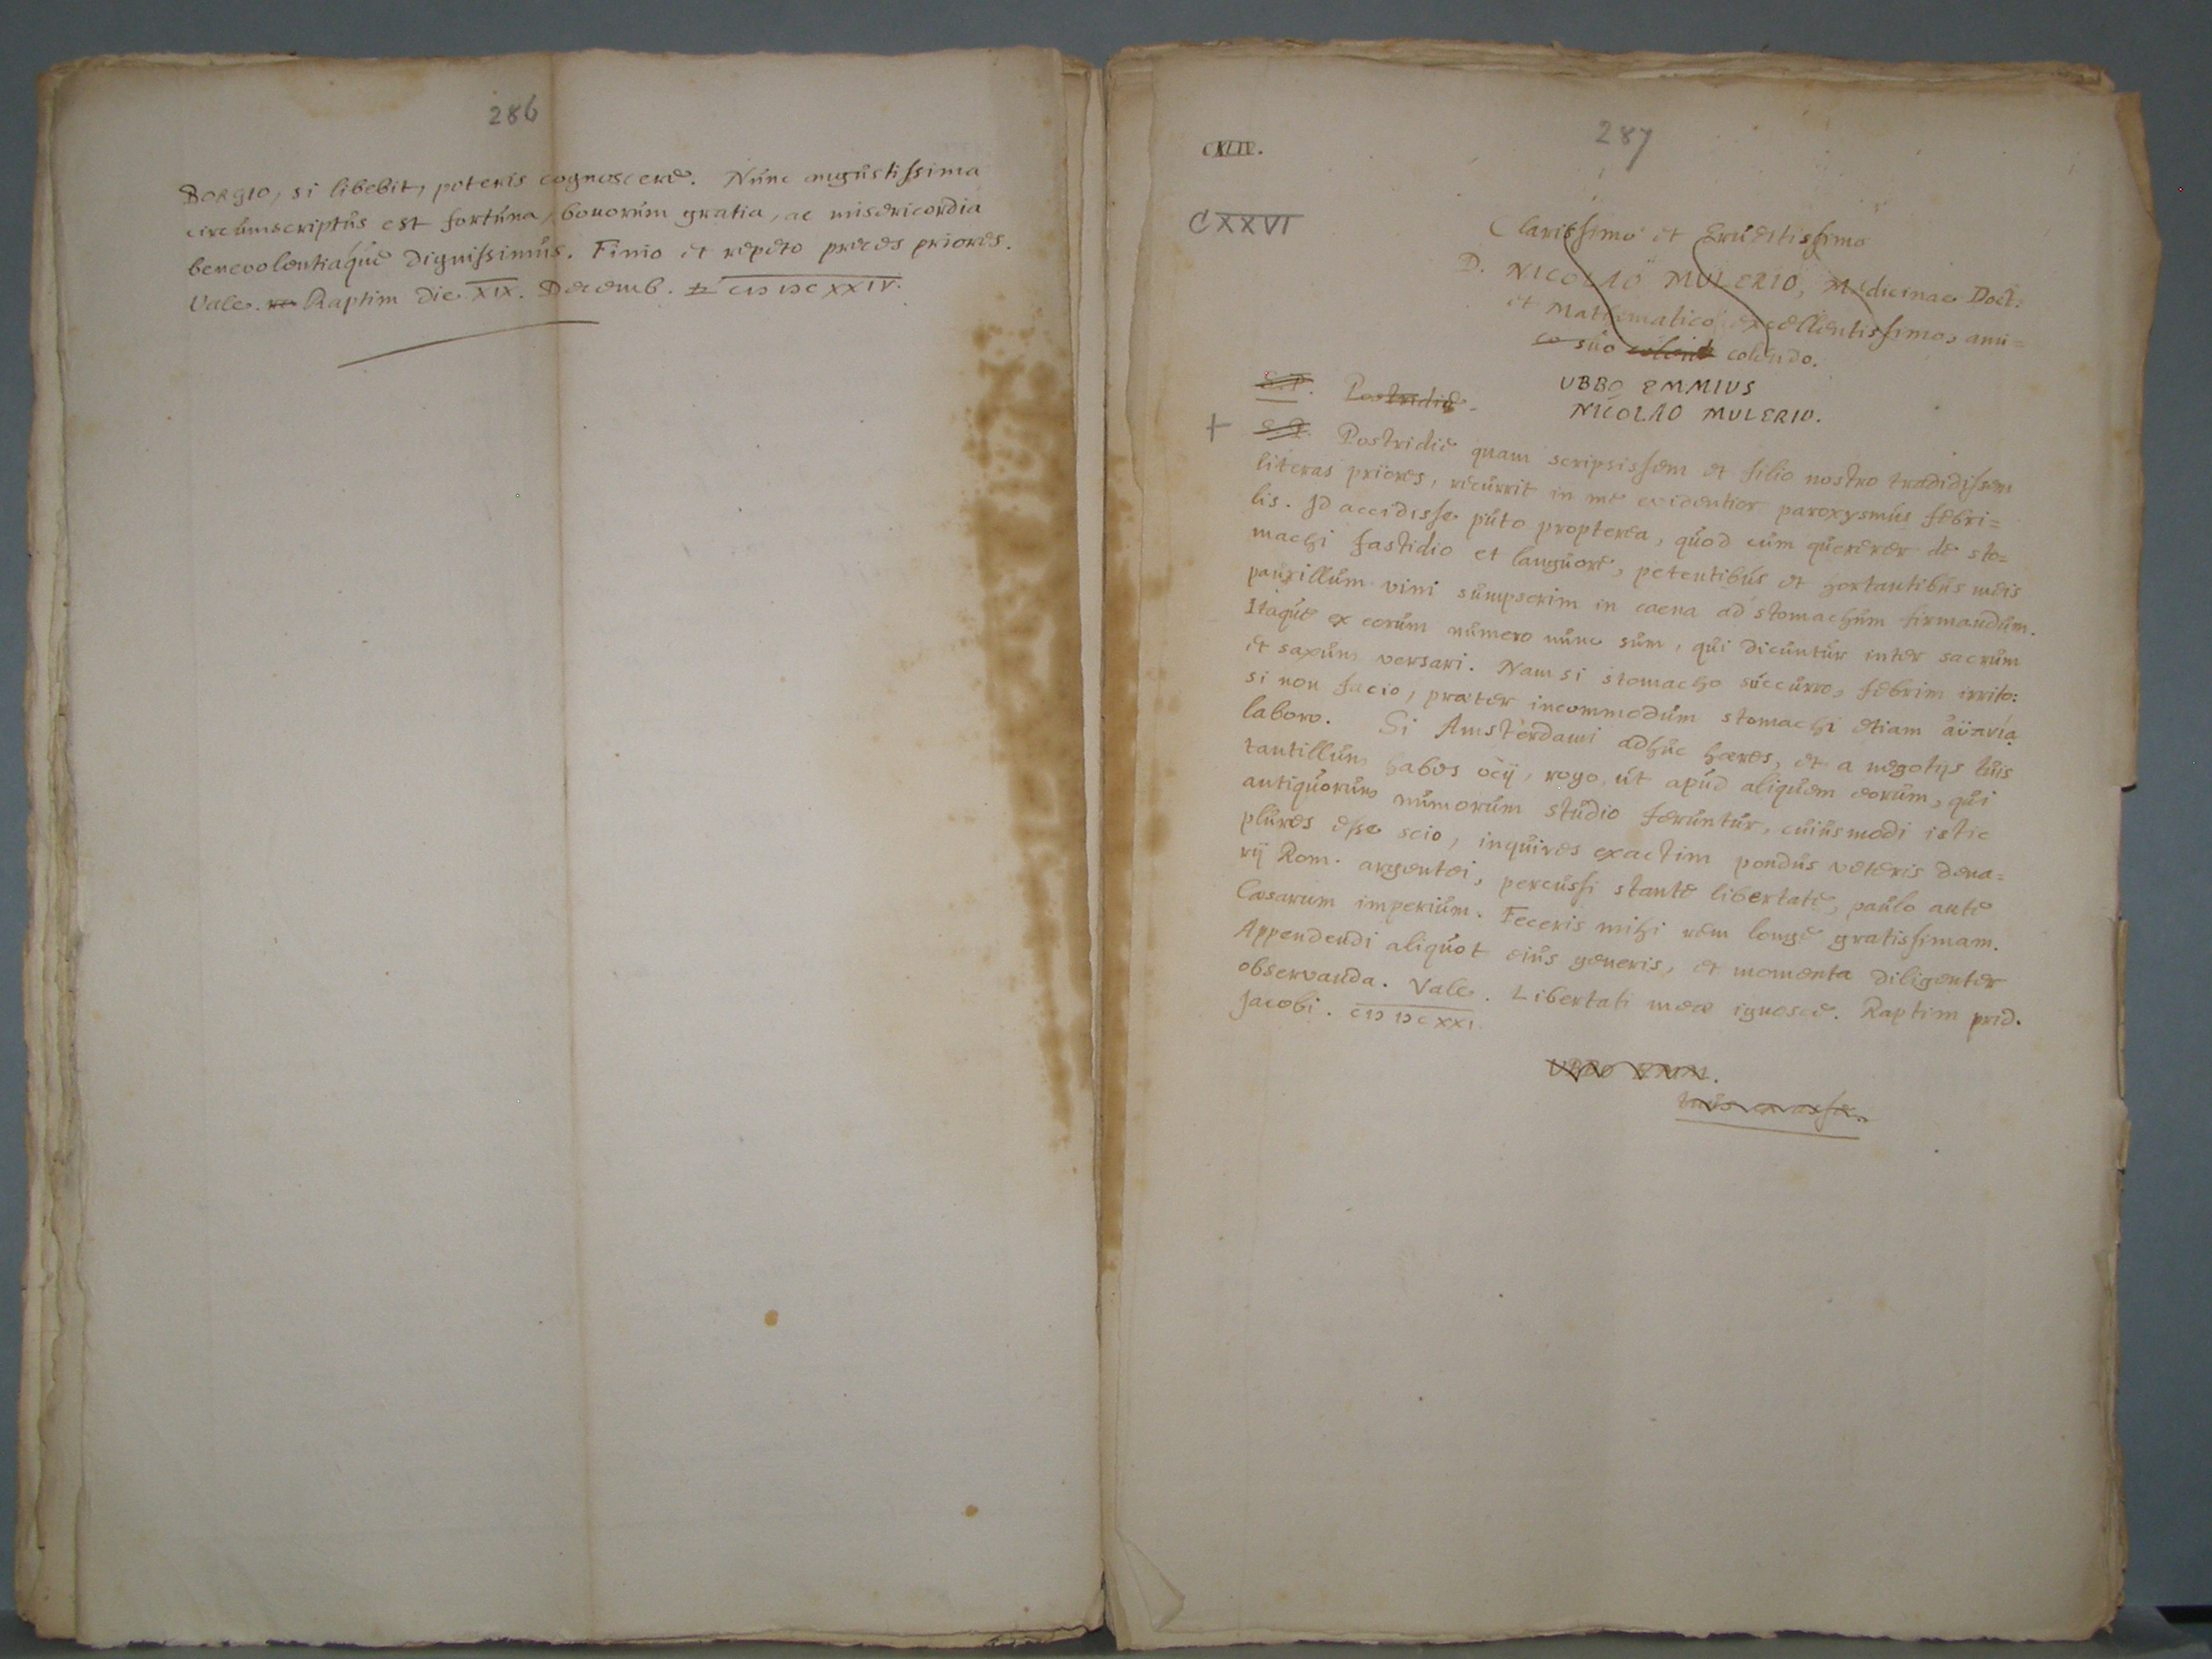 286
BORGIO, si libebit, poteris cognoscere. Nunc angustissima
circumscriptus est fortuna, bonorum gratia, ac misericordia
benevolentiaque dignissimus. Finio et repeto preces priores.
Vale. Raptim die XIX. Decemb. CIƆ IƆC XXIV.
287
CXXVI
Clarissimo et Eruditissimo
D. NICOLAO MULERIO, Medicinae Doct.
et Mathematico excellentissimo, ami=
co suo colendo.
UBBO EMMIUS
NICOLAO MULERIO.
S.P. Postridie
+ S.P. Postridie quam scripsissem et filio nostro tradidissem
literas priores, recurrit in me evidentior paroxysmus febri=
lis. Id accidisse puto propterea, quod cum quererer de sto=
machi fastidio et languore, petentibus et hortantibus meis
pauxillum vini sumpserim in caena ad stomachum firmandum.
Itaque ex eorum numero nunc sum, qui dicuntur inter sacrum
et saxum versari. Nam si stomacho succurro, febrim irrito:
si non facio, praeter incommodum stomachi etiam
laboro. Si Amsterdami adhuc haeres, et a negotijs tuis
tantillum habes ocij, rogo, ut apud aliquem eorum, qui
antiquorum numorum studio feruntur, cuiusmodi istic
plures esse scio, inquires exactim pondus veteris dena=
rij Rom. argentei, percussi stante libertate, paulo ante
Caesarum imperium. Feceris mihi rem longe gratissimam.
Appendendi aliquot eius generis, et momenta diligenter
observanda. Vale. Libertati meae ignosce. Raptim prid.
Jacobi. CIƆ IƆC XXI.
UBBO EMM.